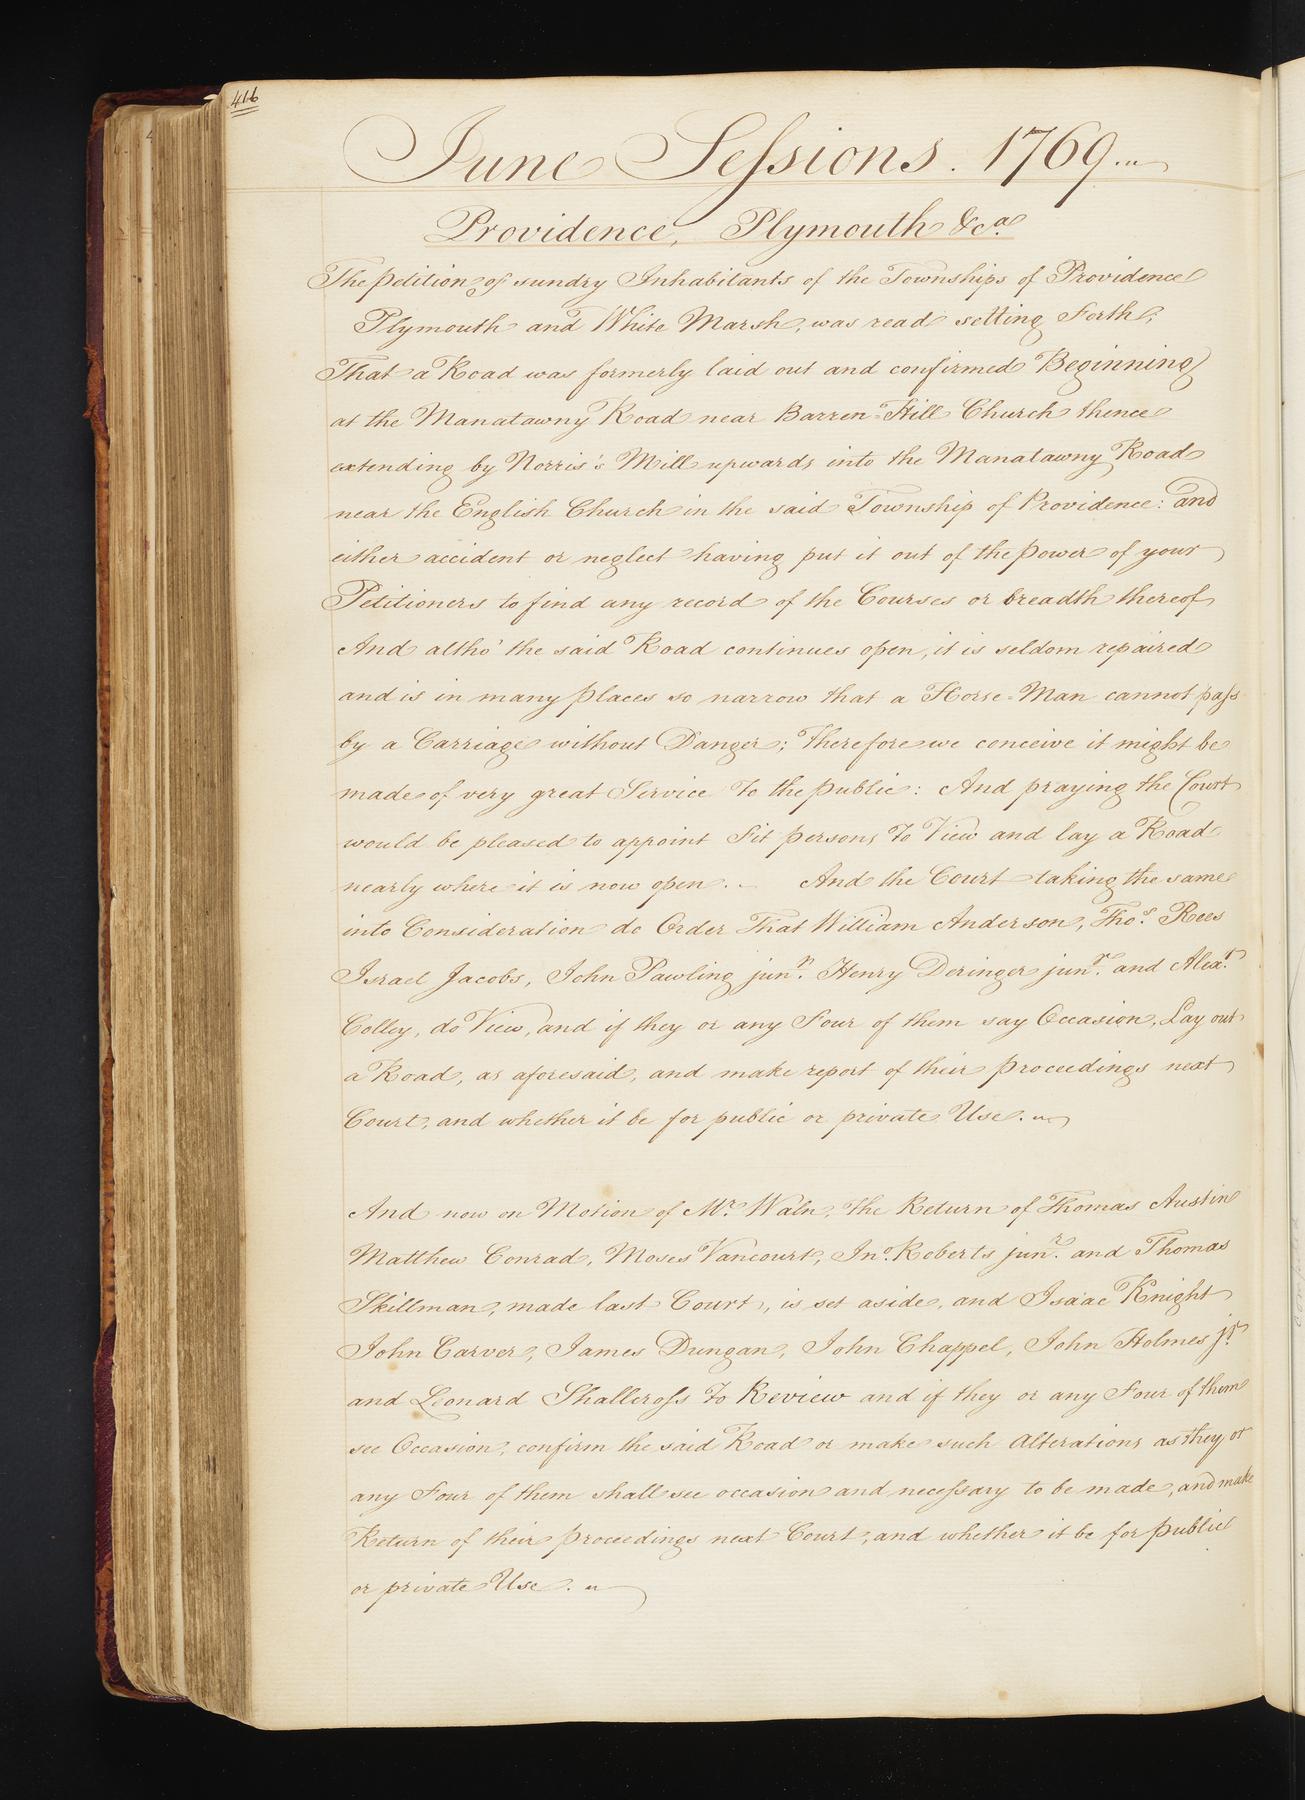 416
June Sessions. 1769
Providence, Plymouth &ca.
The petition of sundry Inhabitants of the Townships of Providence
Plymouth and White Marsh, was read setting Forth,
That a Road was formerly laid out and confirmed Beginning
at the Manatawny Road near Barren-Hill Church thence
extending by Norris's Mill upwards into the Manatawny Road
near the English Church in the said Township of Providence: and
either accident or neglect having put it out of the power of your
Petitioners to find any record of the Courses or breadth thereof
And altho' the said Road continues open, it is seldom repaired
and is in many places so narrow that a Horse-Man cannot pass
by a Carriage without Danger; therefore we conceive it might be
made of very great Service to the public: And praying the Court
would be pleased to appoint Fit persons to View and lay a Road
nearly where it is now open. And the Court taking the same
into Consideration do Order That William Anderson, Thos. Rees
Israel Jacobs, John Pawling junr. Henry Deringer junr. and Alexr.
Colley, do View, and if they or any Four of them say Occasion, Lay out
a Road, as aforesaid, and make report of their proceedings next
Court, and whether it be for public or private Use.
And now on Motion of Mr. Waln, the Return of Thomas Austin
Matthew Conrad, Moses Vancourt, Jno. Roberts junr. and Thomas
Skillman, made last Court, is set aside, and Isaac Knight
John Carver, James Dungan, John Chappel, John Holmes jr.
and Leonard Shallcross to Review and if they or any Four of them
see Occasion, confirm the said Road or make such Alterations as they or
any Four of them shall see occasion and necessary to be made, and make
Return of their proceedings next Court, and whether it be for public
or private Use.